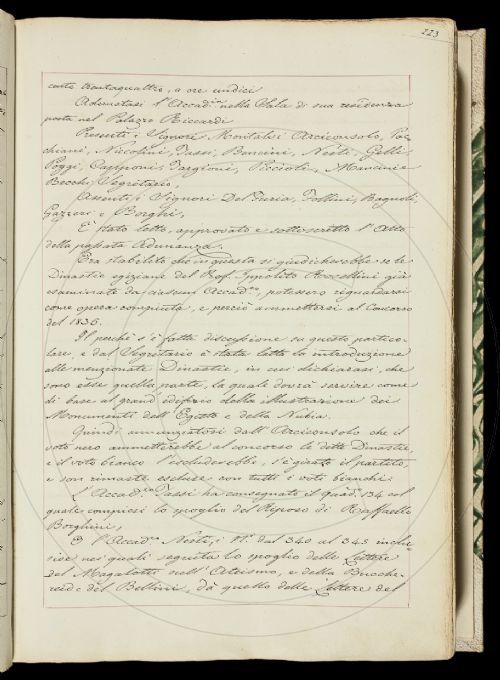 223
cento trentaquattro, a ore undici
Adunatasi l'Accad.ia nella Sala di sua residenza
posta nel Palazzo Riccardi
Presenti i Signori Montalvi Arciconsolo, Poc-
chiani, Niccolini, Tassi, Bencini, Nesti, Gelli
Poggi, Capponi, Targioni, Piccioli, Mancini e
Becchi, Segretario,
Assenti, i Signori Del Furia, Follini, Bagnoli,
Gazzeri e Borghi,
È stato letto, approvato e sottoscritto l'Atto
della passata Adunanza.
Era stabilito che in questa si giudicherebbe se le
Dinastie egiziane del Prof. Ippolito Rosellini già
esaminate da ciascun Accad.co, potessero riguardarsi
come opera compiuta, e perciò ammettersi al Concorso
del 1836.
Il perchè s'è fatta discussione su questo partico-
lare, e dal Segretario è stata letta la introduzione
alle menzionate Dinastie, in cui dichiarasi, che
sono esse quella parte, la quale dovrà servire come
di base al grand'edifizio della illustrazione dei
Monumenti dell'Egitto e della Nubia.
Quindi annunziatosi dall'Arciconsolo che il
voto nero ammetterebbe al concorso le dette Dinastie,
e il voto bianco l'escluderebbe, s'è girato il partito,
e son rimaste escluse con tutti i voti bianchi.
L'Accad.co Tassi ha consegnato il Quad.o 134 col
quale compiesi lo spoglio del Riposo di Raffaello
Borghini,
E l'Accad.co Nesti, i N.i dal 340 al 343 inclu-
sive nei quali seguita lo spoglio delle Lettere
del Magalotti sull'Ateismo, e della Bucche-
reide del Bellini, dà quello delle Lettere del